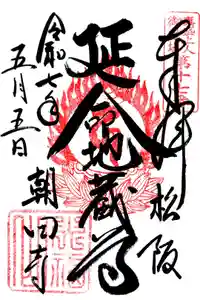 奉拝
松阪
延命地蔵尊
令和七年
五月五日
朝田寺